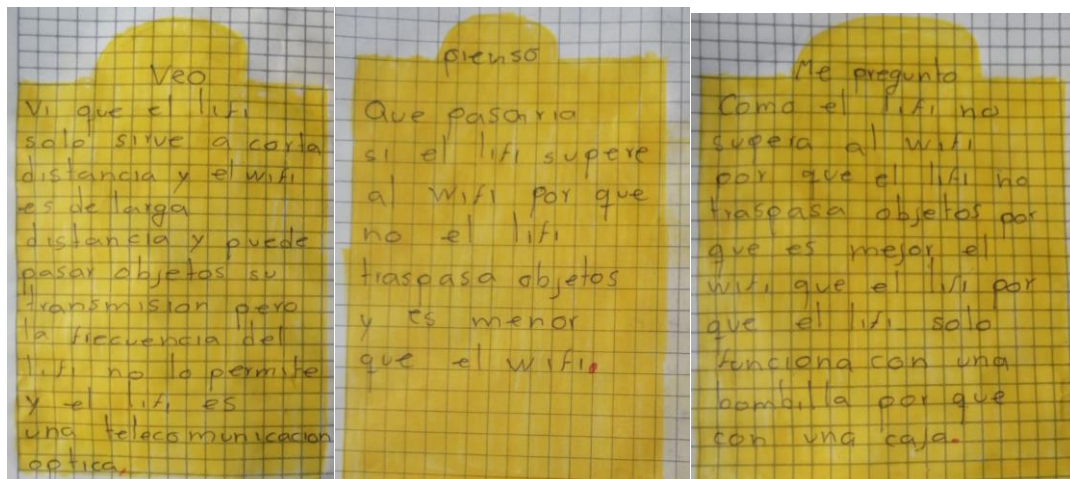 Veo
Vi que el lifi
solo sirve a corta
distancia y el wifi
es de larga
distancia y puede
pasar objetos su
transmision pero
la frecuencia del
lifi no lo permite
y el lifi es
una telecomunicacion
optica.
pienso
Que pasaria
si el lifi supere
al wifi por que
no el lifi
traspasa objetos
y es menor
que el wifi.
Me pregunto
Como el lifi no
supera al wifi
por que el lifi no
traspasa objetos por
que es mejor el
wifi que el lifi por
que el lifi solo
funciona con una
bombilla por que
con una caja.